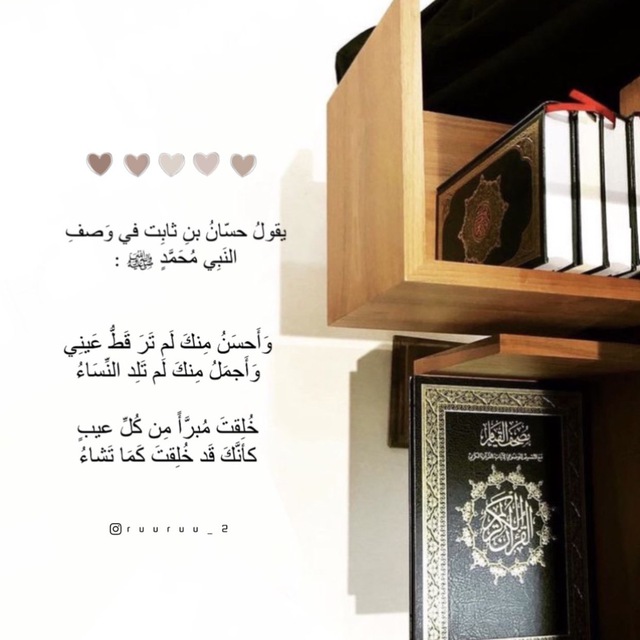 يقولُ حسّانُ بنِ ثابِت في وَصفِ
النَبِي مُحَمَّدٍ ﷺ :
وَأَحسَنُ مِنكَ لَم تَرَ قَطُّ عَينِي
وَأَجمَلُ مِنكَ لَم تَلِد النِّسَاءُ
خُلِقتَ مُبرَّأً مِن كُلِّ عيبٍ
كأَنَّكَ قَد خُلِقتَ كَمَا تَشاءُ
ruuruu_2
مصحف القيام
القرآن الكريم